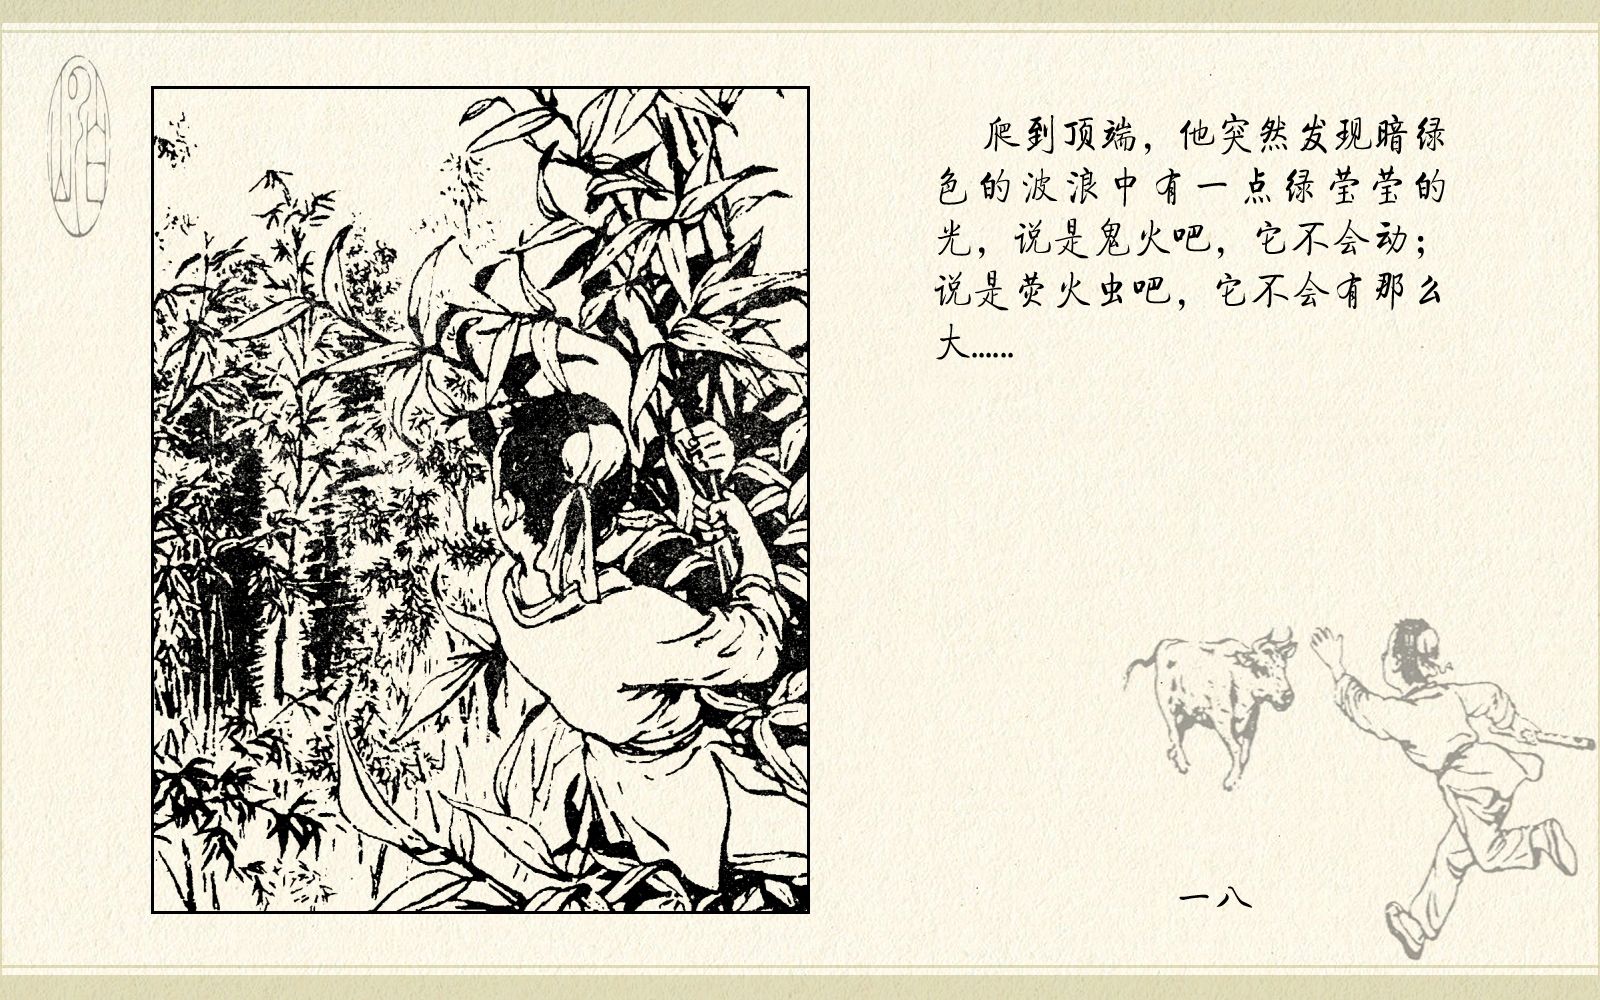 爬到顶端，他突然发现暗绿
色的波浪中有一点绿莹莹的
光，说是鬼火吧，它不会动；
说是萤火虫吧，它不会有那么
大……
一八